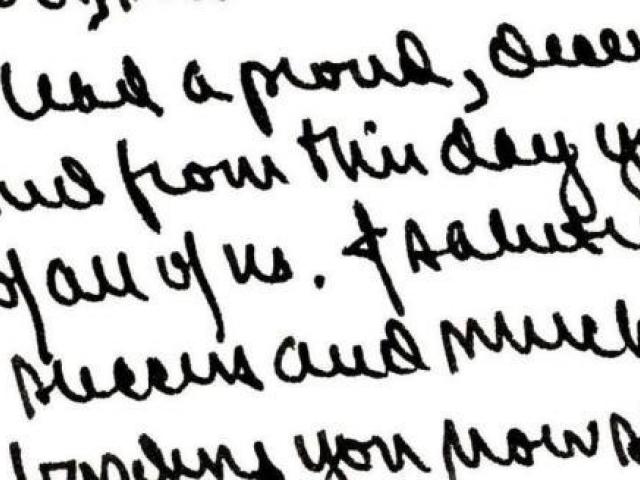 lead a proud, dece
and from this day y
of all of us. I salute
success and much
you now s